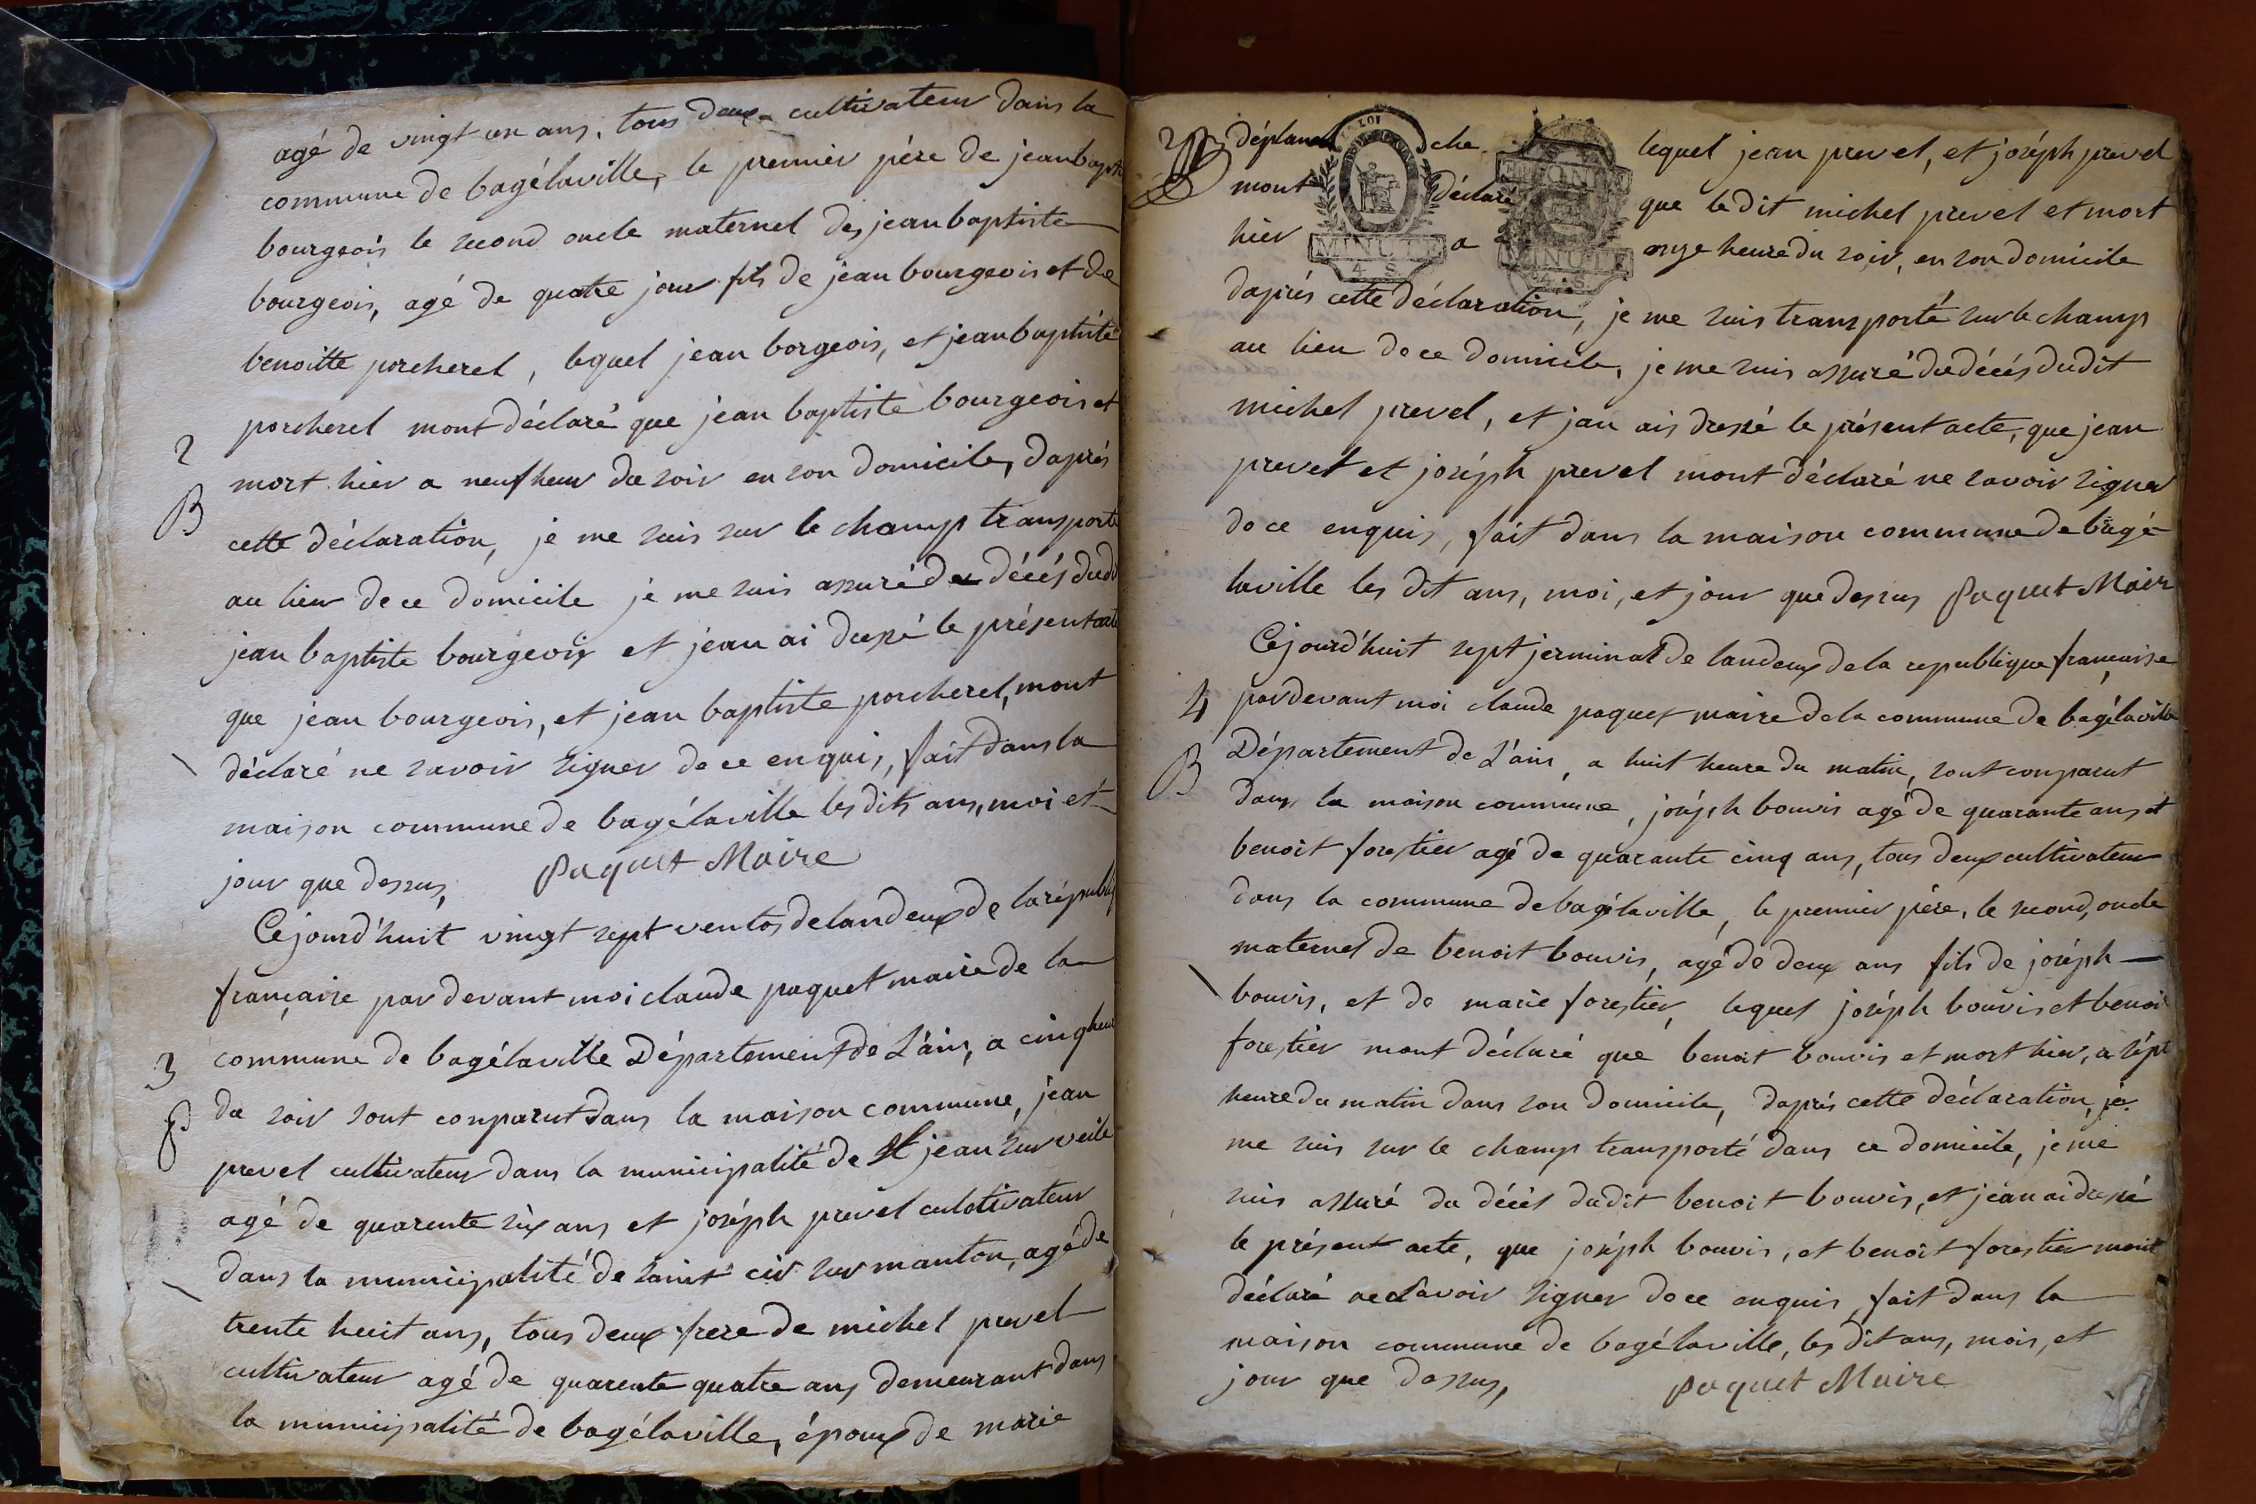 agé de vingt un ans, tous deux cultivateur dans la
commune de bagélaville, le premier pére de jean bapt
bourgeois le second oncle maternel de jean baptiste
bourgeois, agé de quatre jour fils de jean bourgeois et de
benoitte porcherel, lequel jean borgeois, et jean baptiste
porcherel mont déclaré que jean baptiste bourgeois et
2
mort hier a neuf heur du soir en son domicile, daprés
B
cette déclaration, je me suis sur le champ transporté
au lieu de ce domicile je me suis assuré du décés dudit
jean baptiste bourgeois et jean ai dressé le présent acte
que jean bourgeois, et jean baptiste porcherel, mont
déclaré ne savoir signer de ce enquis, fait dans la
maison commune de bagélaville les dits ans, moi et
jour que dessus, paquet Maire
Cejourd'huit vingt sept ventos de lan deux de la républi
française par devant moi claude paquet maire de la
3 commune de bagélaville Département de L'ain, a cinq heur
du soir sont conparut dans la maison commune, jean
prevel cultivateur dans la municipalité de St jean sur veile
agé de quarente six ans et joséph prevel culotivateur
dans la municipalité de saint cir sur manton, agé de
trente huit ans, tous deux frere de michel prevel
cultivateur agé de quarente quatre ans demeurant dans
la municipalité de bagélaville, époux de marie
déplanche lequel jean prevel, et joséph prevel
mont déclaré que le dit michel prevel et mort
hier a onze heure du soir, en son domicile
LA LOI
MINUTE
4 S
MINUTE
4 S
daprés cette déclaration, je me suis transporté sur le champ
au lieu de ce domicile, je me suis assuré du décés dudit
michel prevel, et jan ais dressé le présent acte, que jean
prevel et joséph prevel mont déclaré ne savoir signer
de ce enquis, fait dans la maison commune de bagé
laville les dit ans, moi, et jour que dessus paquet Maire
Cejourd'huit sept jerminal de lan deux de la republique française
4 par devant moi claude paquet maire de la commune de bagélaville
B
Département de L'ain, a huit heure du matin, sont conparut
dans la maison commune, joséph bouvis agé de quarante ans et
benoit forestier agé de quarante cinq ans, tous deux cultivateur
dans la commune de bagélaville, le premier pére, le second, oncle
maternel de benoit bouvis, agé de deux ans fils de joséph
bouvis, et de marie forestier, lequel joséph bouvis et benoi
forestier mont déclaré que benoit bouvis et mort hier, a sépt
heure du matin dans son domicile, daprés cette déclaration, je
me suis sur le champ transporté dans ce domicile, je me
suis assuré du décés dudit benoit bouvis, et jean ai dressé
le présent acte, que joséph bouvis, et benoit forestier mont
déclaré ne savoir signer de ce enquis, fait dans la
maison commune de bagélaville, les dit ans, mois, et
jour que dessus, paquet Maire